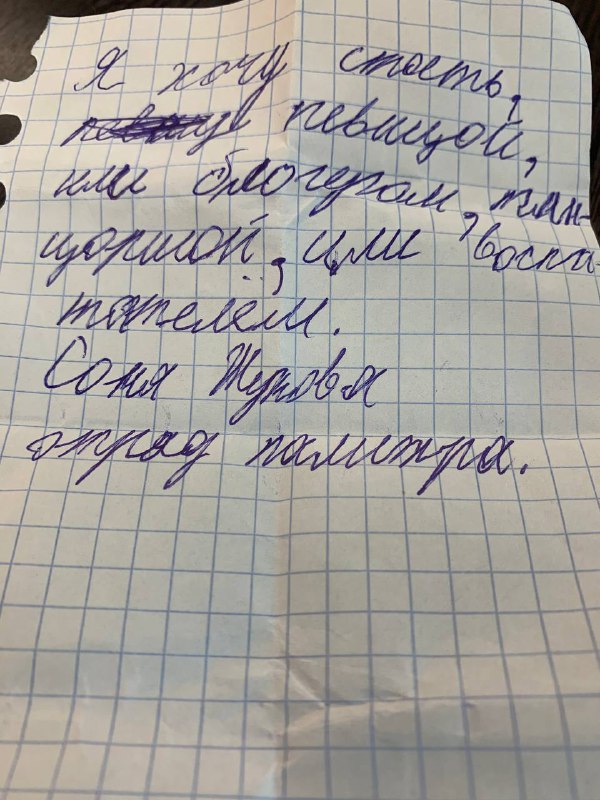 Я хочу стость,
певицой,
или блогером, тан-
цоршой, или воспи-
тотелем.
Соня Жукова
отряд палитра.